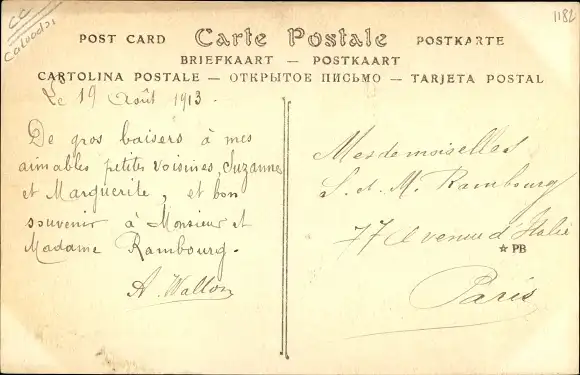 CC
Calvados
1182
POST CARD Carte Postale POSTKARTE
BRIEFKAART — POSTKAART
CARTOLINA POSTALE — ОТКРЫТОЕ ПИСЬМО — TARJETA POSTAL
Le 19 Août 1913.
De gros baisers à mes
aimables petites voisines, Suzanne
et Marguerite, et bon
souvenir à Monsieur et
Madame Rambourg.
A. Wallon
Mesdemoiselles
S. et M. Rambourg
77 Avenue d'Italie
☆ PB
Paris